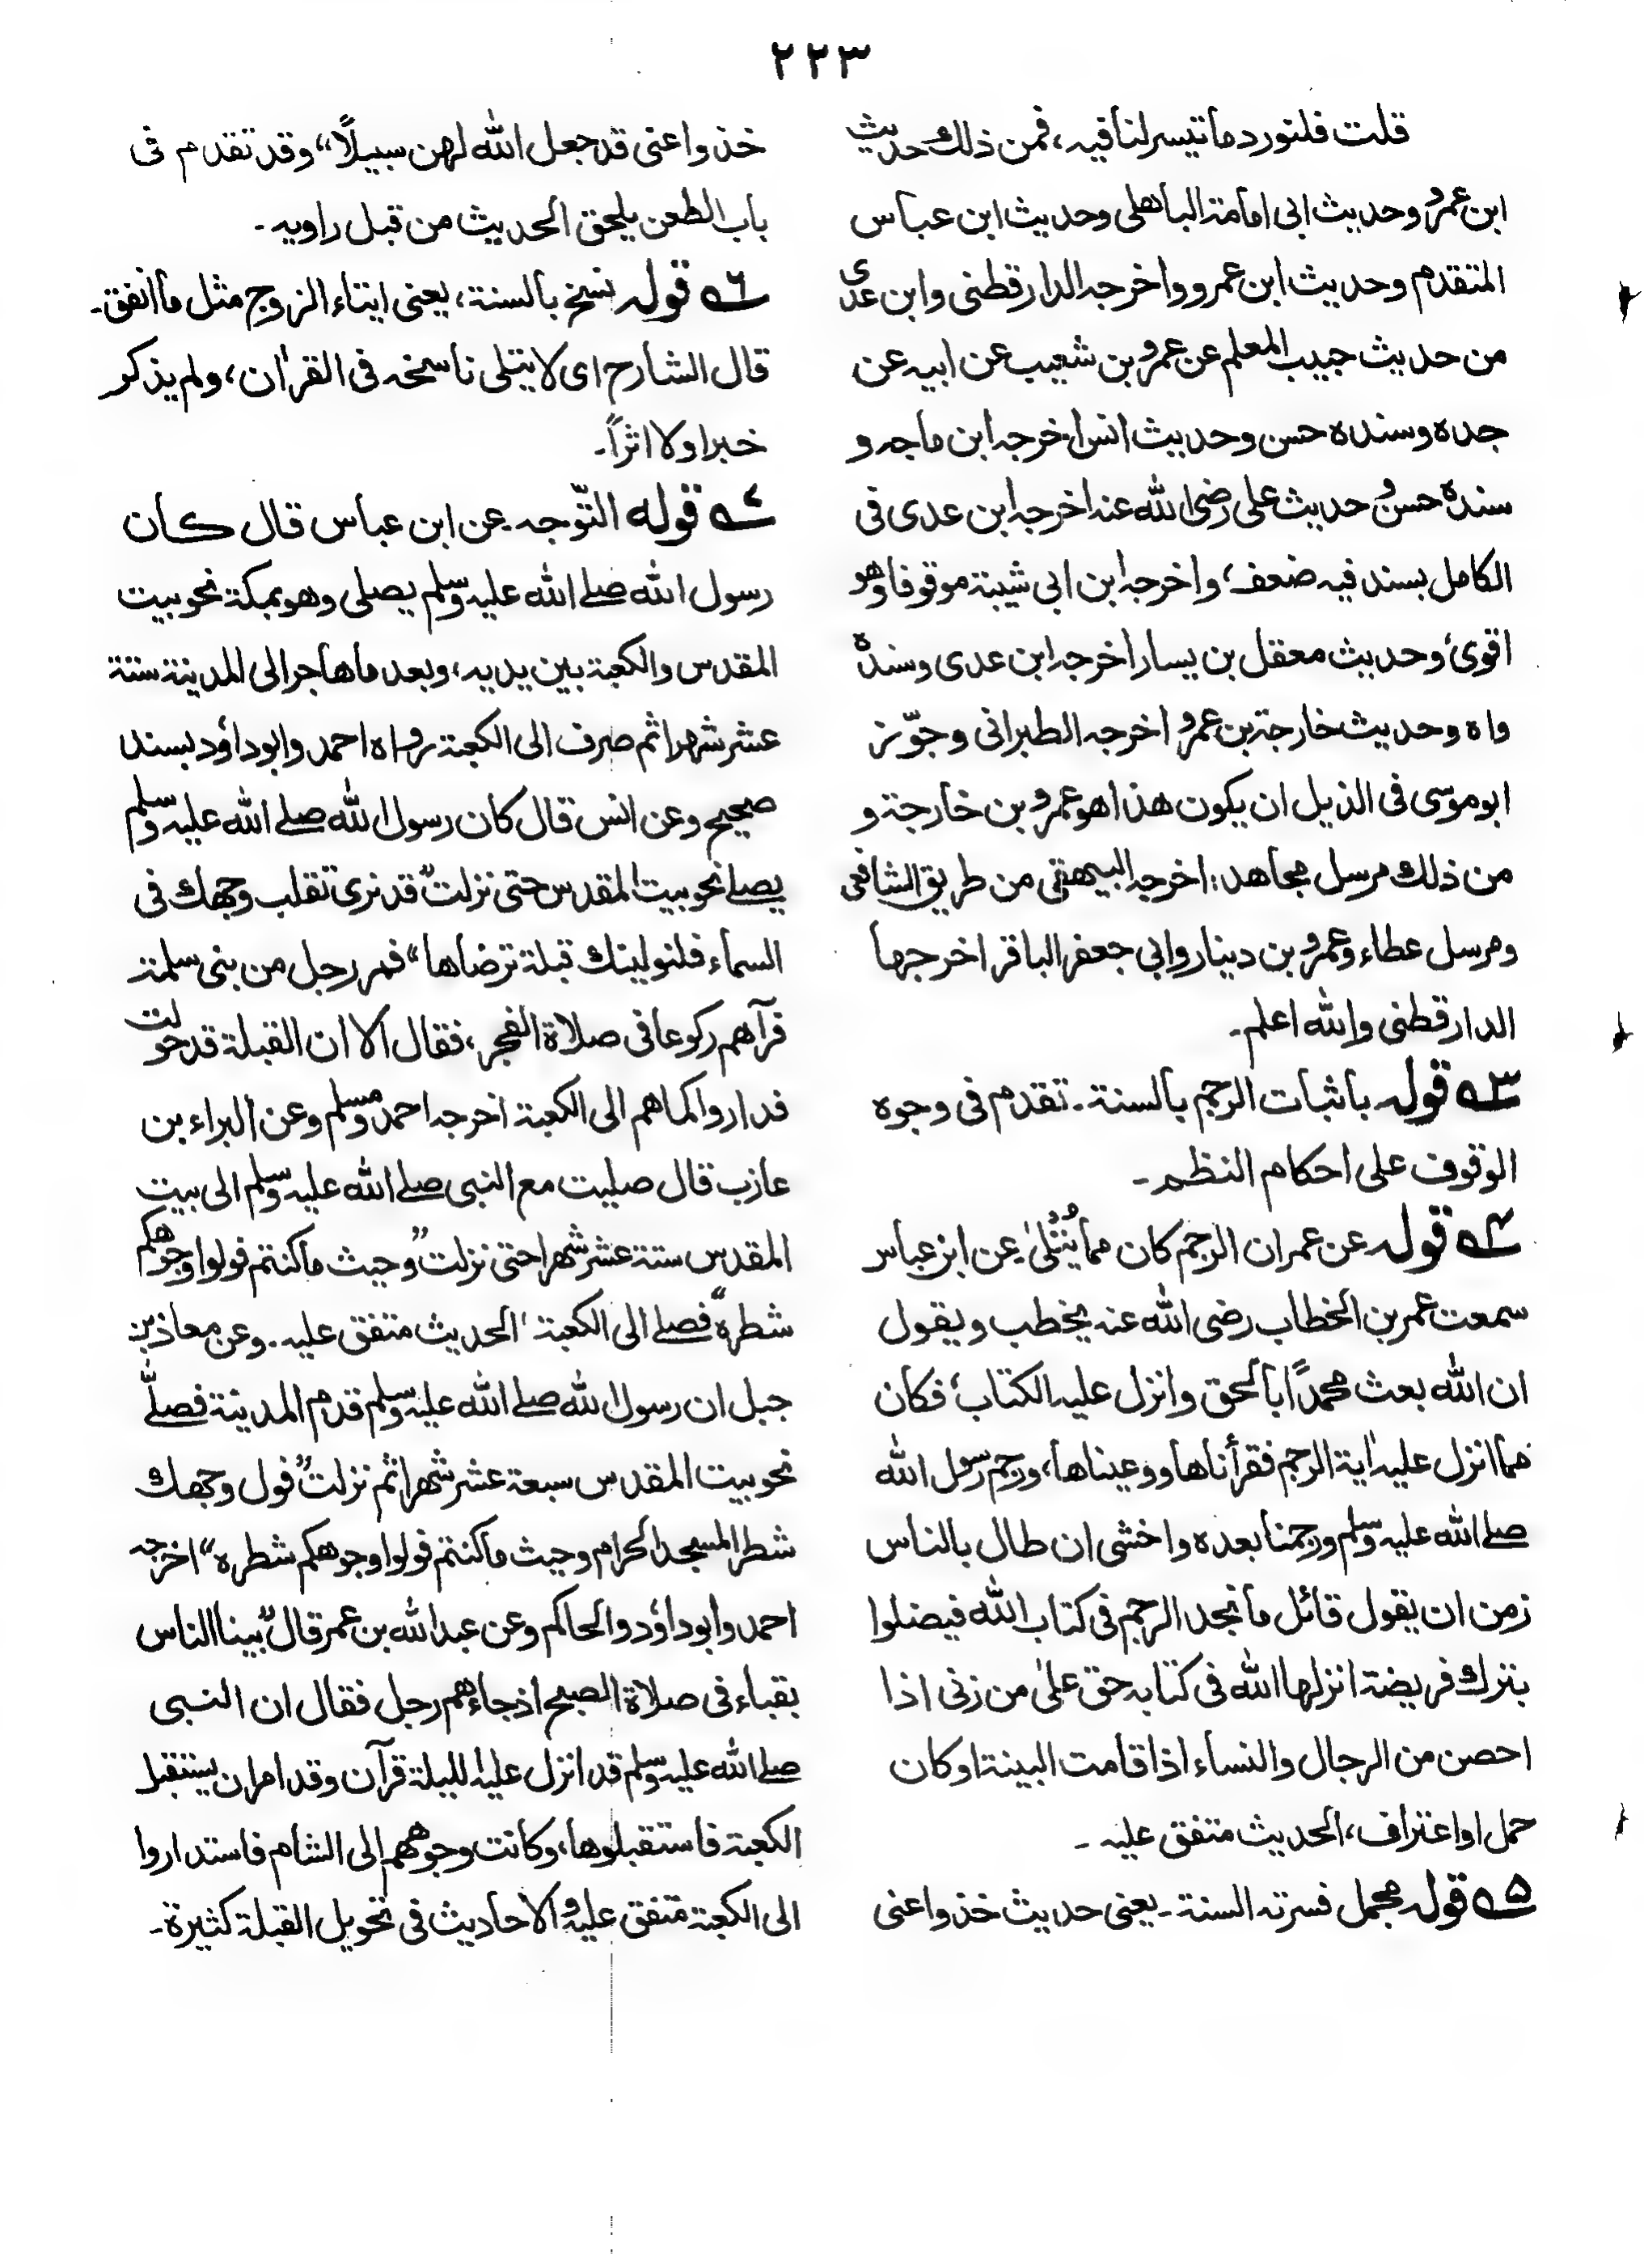 ٢٢٣
قلت فلنورد ما تيسر لنا فيه، فمن ذلك حديث
ابن عمرو وحديث ابى امامة الباهلى وحديث ابن عباس
المتقدم وحديث ابن عمرو واخرجه الدارقطنى وابن عدى
من حديث حبيب المعلم عن عمرو بن شعيب عن ابيه عن
جده وسنده حسن وحديث انس اخرجه ابن ماجه و
سنده حسن و حديث على رضى الله عنه اخرجه ابن عدى فى
الكامل بسند فيه ضعف، واخرجه ابن ابى شيبة موقوفا وهو
اقوى، وحديث معقل بن يسار اخرجه ابن عدى وسنده
واه وحديث خارجة بن عمرو اخرجه الطبرانى وجوّز
ابو موسى فى الذيل ان يكون هذا هو عمرو بن خارجة و
من ذلك مرسل مجاهد: اخرجه البيهقى من طريق الشافعى
ومرسل عطاء وعمرو بن دينار وابى جعفر الباقر اخرجها
الدارقطنى والله اعلم۔
٣ـه قوله باثبات الرجم بالسنة۔ تقدم فى وجوه
الوقوف على احكام النظم۔
٤ـه قوله عن عمر ان الرجم كان مما يُتْلىٰ۔ عن ابن عباس
سمعت عمر بن الخطاب رضى الله عنه يخطب ويقول
ان الله بعث محمدًا بالحق وانزل عليه الكتاب، فكان
مما انزل عليه اٰية الرجم فقرأناها ووعيناها، ورجم رسول الله
صلے الله عليه وسلم ورجمنا بعده واخشى ان طال بالناس
زمن ان يقول قائل ما نجد الرجم فى كتاب الله فيضلوا
بترك فريضة انزلها الله فى كتابه حق علىٰ من زنى اذا
احصن من الرجال والنساء اذا قامت البينة او كان
حمل او اعتراف، الحديث متفق عليه ۔
٥ـه قوله مجمل فسرته السنة۔ يعنى حديث خذوا عنى
خذوا عنى قد جعل الله لهن سبيلاً“ وقد تقدم فى
باب الطعن يلحق الحديث من قبل راويه ۔
٦ـه قوله نسخ بالسنة، يعنى ايتاء الزوج مثل ما انفق۔
قال الشارح اى لا يتلى ناسخه فى القراٰن، ولم يذكر
خبرا ولا اثراً۔
٧ـه قوله التّوجه۔ عن ابن عباس قال كان
رسول الله صلے الله عليه وسلم يصلى وهو بمكة نحو بيت
المقدس والكعبة بين يديه، وبعد ما هاجر الى المدينة ستة
عشر شهرا ثم صرف الى الكعبة رواه احمد وابو داؤد بسند
صحيح وعن انس قال كان رسول الله صلے الله عليه وسلم
يصلے نحو بيت المقدس حتى نزلت ”قد نرى تقلب وجهك فى
السماء فلنولينك قبلة ترضاها“ فمر رجل من بنى سلمة
فرآهم ركوعا فى صلاة الفجر، فقال الا ان القبلة قد حولت
فداروا كما هم الى الكعبة اخرجه احمد ومسلم وعن البراء بن
عازب قال صليت مع النبى صلے الله عليه وسلم الى بيت
المقدس ستة عشر شهرا حتى نزلت ”وحيث ما كنتم فولوا وجوهكم
شطره“ فصلے الى الكعبة، الحديث متفق عليه۔ وعن معاذ بن
جبل ان رسول الله صلے الله عليه وسلم قدم المدينة فصلّے
نحو بيت المقدس سبعة عشر شهرا ثم نزلت ”فول وجهك
شطر المسجد الحرام وحيث ما كنتم فولوا وجوهكم شطره“ اخرجه
احمد وابو داؤد والحاكم وعن عبد الله بن عمر قال ”بينا الناس
بقباء فى صلاة الصبح اذ جاءهم رجل فقال ان النبى
صلے الله عليه وسلم قد انزل عليه الليلة قرآن وقد امر ان يستقبل
الكعبة فاستقبلوها، وكانت وجوههم الى الشام فاستداروا
الى الكعبة متفق عليه و الاحاديث فى تحويل القبلة كثيرة۔